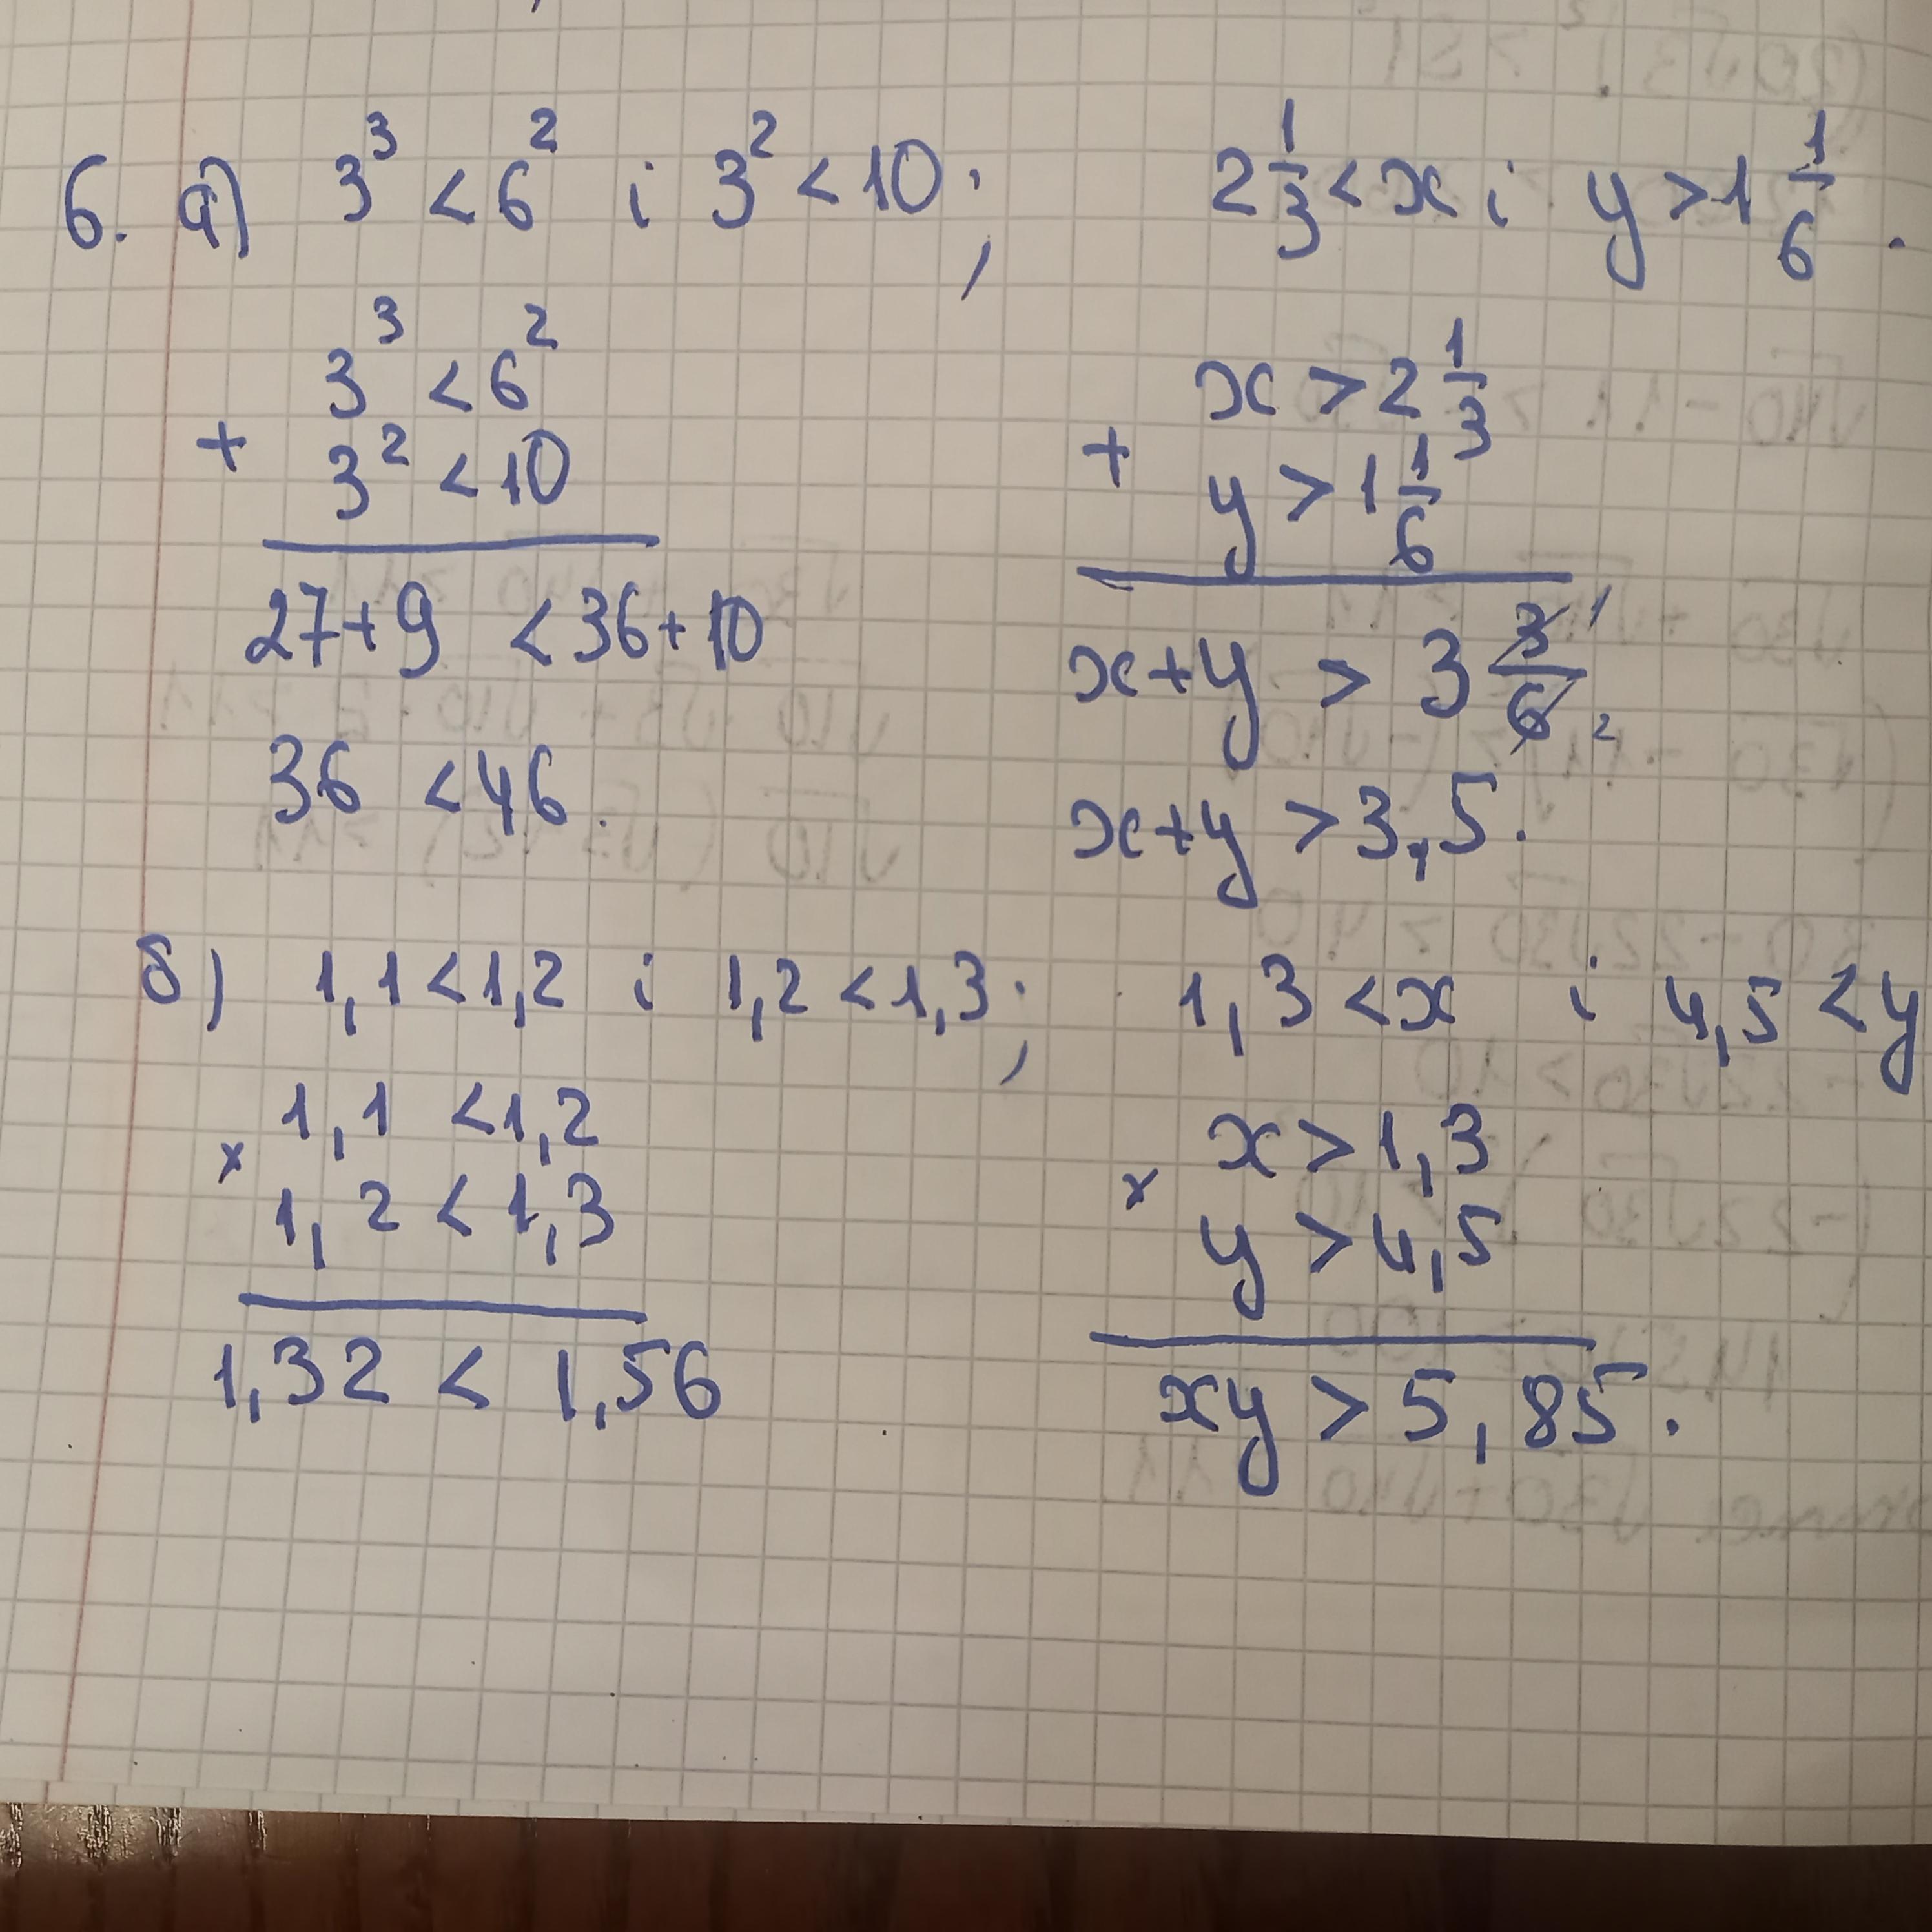 6. а) 3³ < 6² і 3² < 10; 2 1/3 < x і y > 1 1/6.
3³ < 6²
+ 3² < 10
27+9 < 36+10
36 < 46.
x > 2 1/3
+ y > 1 1/6
x+y > 3 3/6 1 2
x+y > 3,5.
б) 1,1 < 1,2 і 1,2 < 1,3; 1,3 < x і 4,5 < y
1,1 < 1,2
× 1,2 < 1,3
1,32 < 1,56
x > 1,3
× y > 4,5
xy > 5,85.